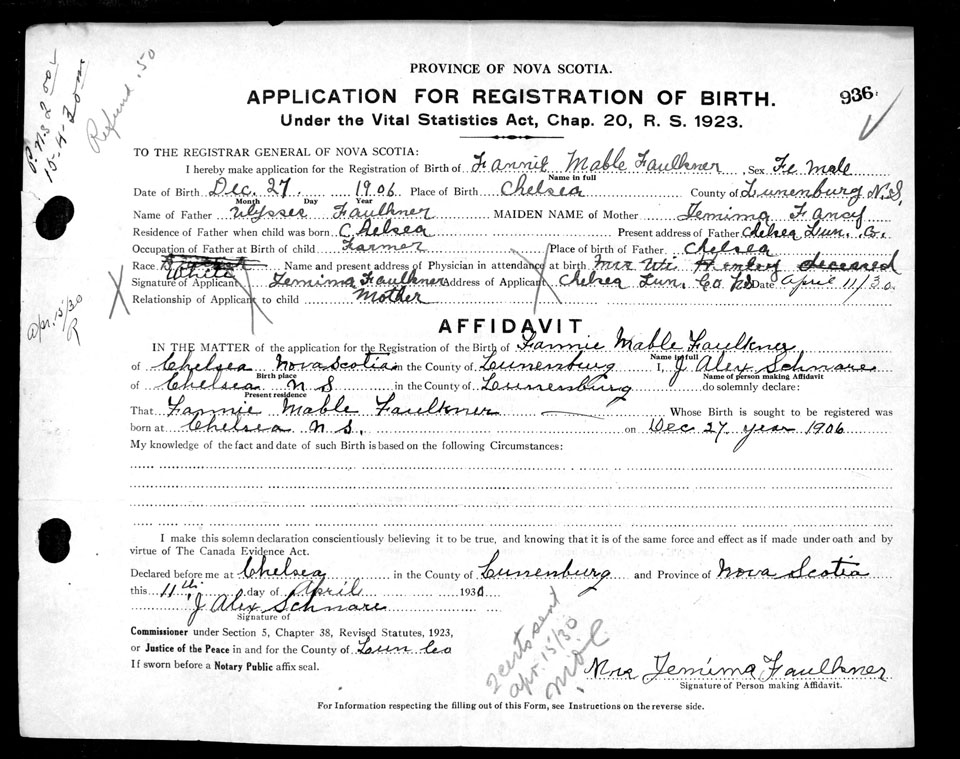 PROVINCE OF NOVA SCOTIA.
APPLICATION FOR REGISTRATION OF BIRTH.
936
Under the Vital Statistics Act, Chap. 20, R. S. 1923.
15-4-30
Refund .50
TO THE REGISTRAR GENERAL OF NOVA SCOTIA:
I hereby make application for the Registration of Birth of Fannie Mable Faulkner Sex Fe Male
Name in full
Date of Birth Dec. 27. 1906. Place of Birth Chelsea County of Lunenburg N.S.
Month Day Year
Name of Father Ulysses Faulkner MAIDEN NAME of Mother Jemima Fancy
Residence of Father when child was born Chelsea Present address of Father Chelsea Lun. Co.
Occupation of Father at Birth of child Farmer Place of birth of Father Chelsea
Race White Name and present address of Physician in attendance at birth Mrs deceased
Signature of Applicant Jemima Faulkner Address of Applicant Chelsea Lun. Co NS Date April 11/30
Relationship of Applicant to child Mother
Apr. 15/30
R
AFFIDAVIT
IN THE MATTER of the application for the Registration of the Birth of Fannie Mable Faulkner
Name in full
of Chelsea Nova Scotia in the County of Lunenburg I, J Alex Schnare
Birth place Name of person making Affidavit
of Chelsea N S in the County of Lunenburg do solemnly declare:
Present residence
That Fannie Mable Faulkner Whose Birth is sought to be registered was
born at Chelsea N S. on Dec 27 year 1906
My knowledge of the fact and date of such Birth is based on the following Circumstances:
I make this solemn declaration conscientiously believing it to be true, and knowing that it is of the same force and effect as if made under oath and by
virtue of The Canada Evidence Act.
Declared before me at Chelsea in the County of Lunenburg and Province of Nova Scotia
this 11th day of April 1930
J Alex Schnare
Signature of
Commissioner under Section 5, Chapter 38, Revised Statutes, 1923,
or Justice of the Peace in and for the County of Lun Co
If sworn before a Notary Public affix seal.
2 cents send
Apr. 15/30
Mrs Jemima Faulkner
Signature of Person making Affidavit.
For Information respecting the filling out of this Form, see Instructions on the reverse side.